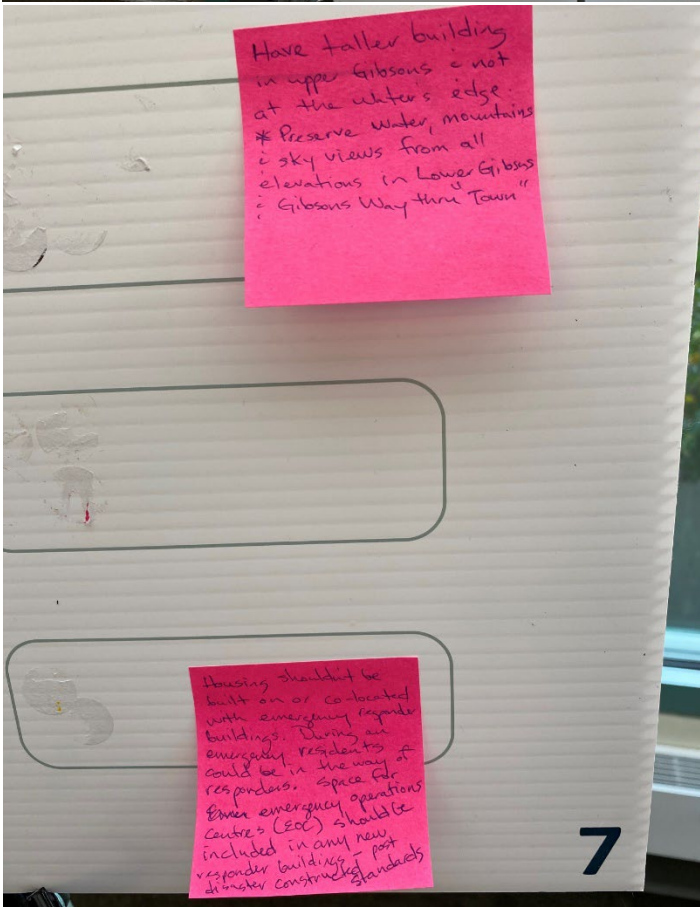 Have taller building
in upper Gibsons & not
at the water's edge.
* Preserve Water, mountains
& sky views from all
elevations in Lower Gibsons
& Gibsons Way thru "Town"
Housing shouldn't be
built on or co-located
with emergency responder
buildings. During an
emergency, residents
could be in the way of
responders. Space for
emergency operations
centres (EOC) should be
included in any new
responder buildings - post
disaster constructed standards
7